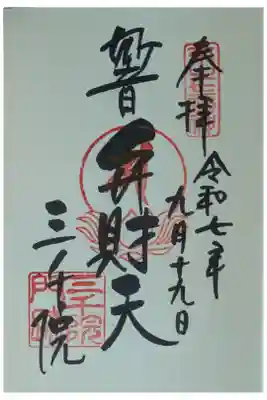 奉拝
令和七年
九月十九日
妙音
弁財天
三千院
三千院
門跡